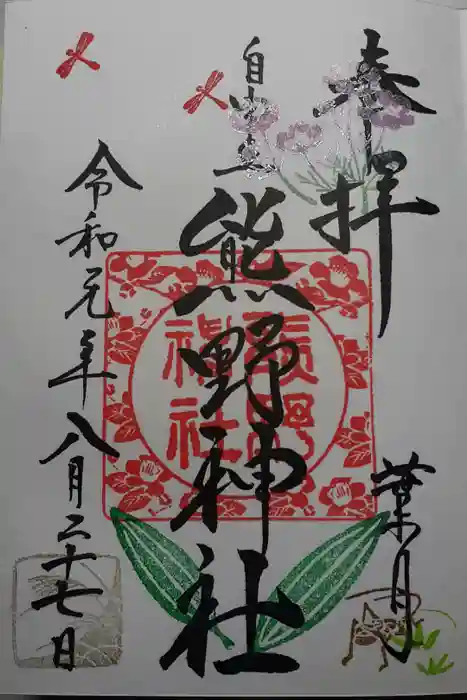 奉拝
葉月
自由が丘
熊野神社
熊野
神社
令和元年八月二十七日